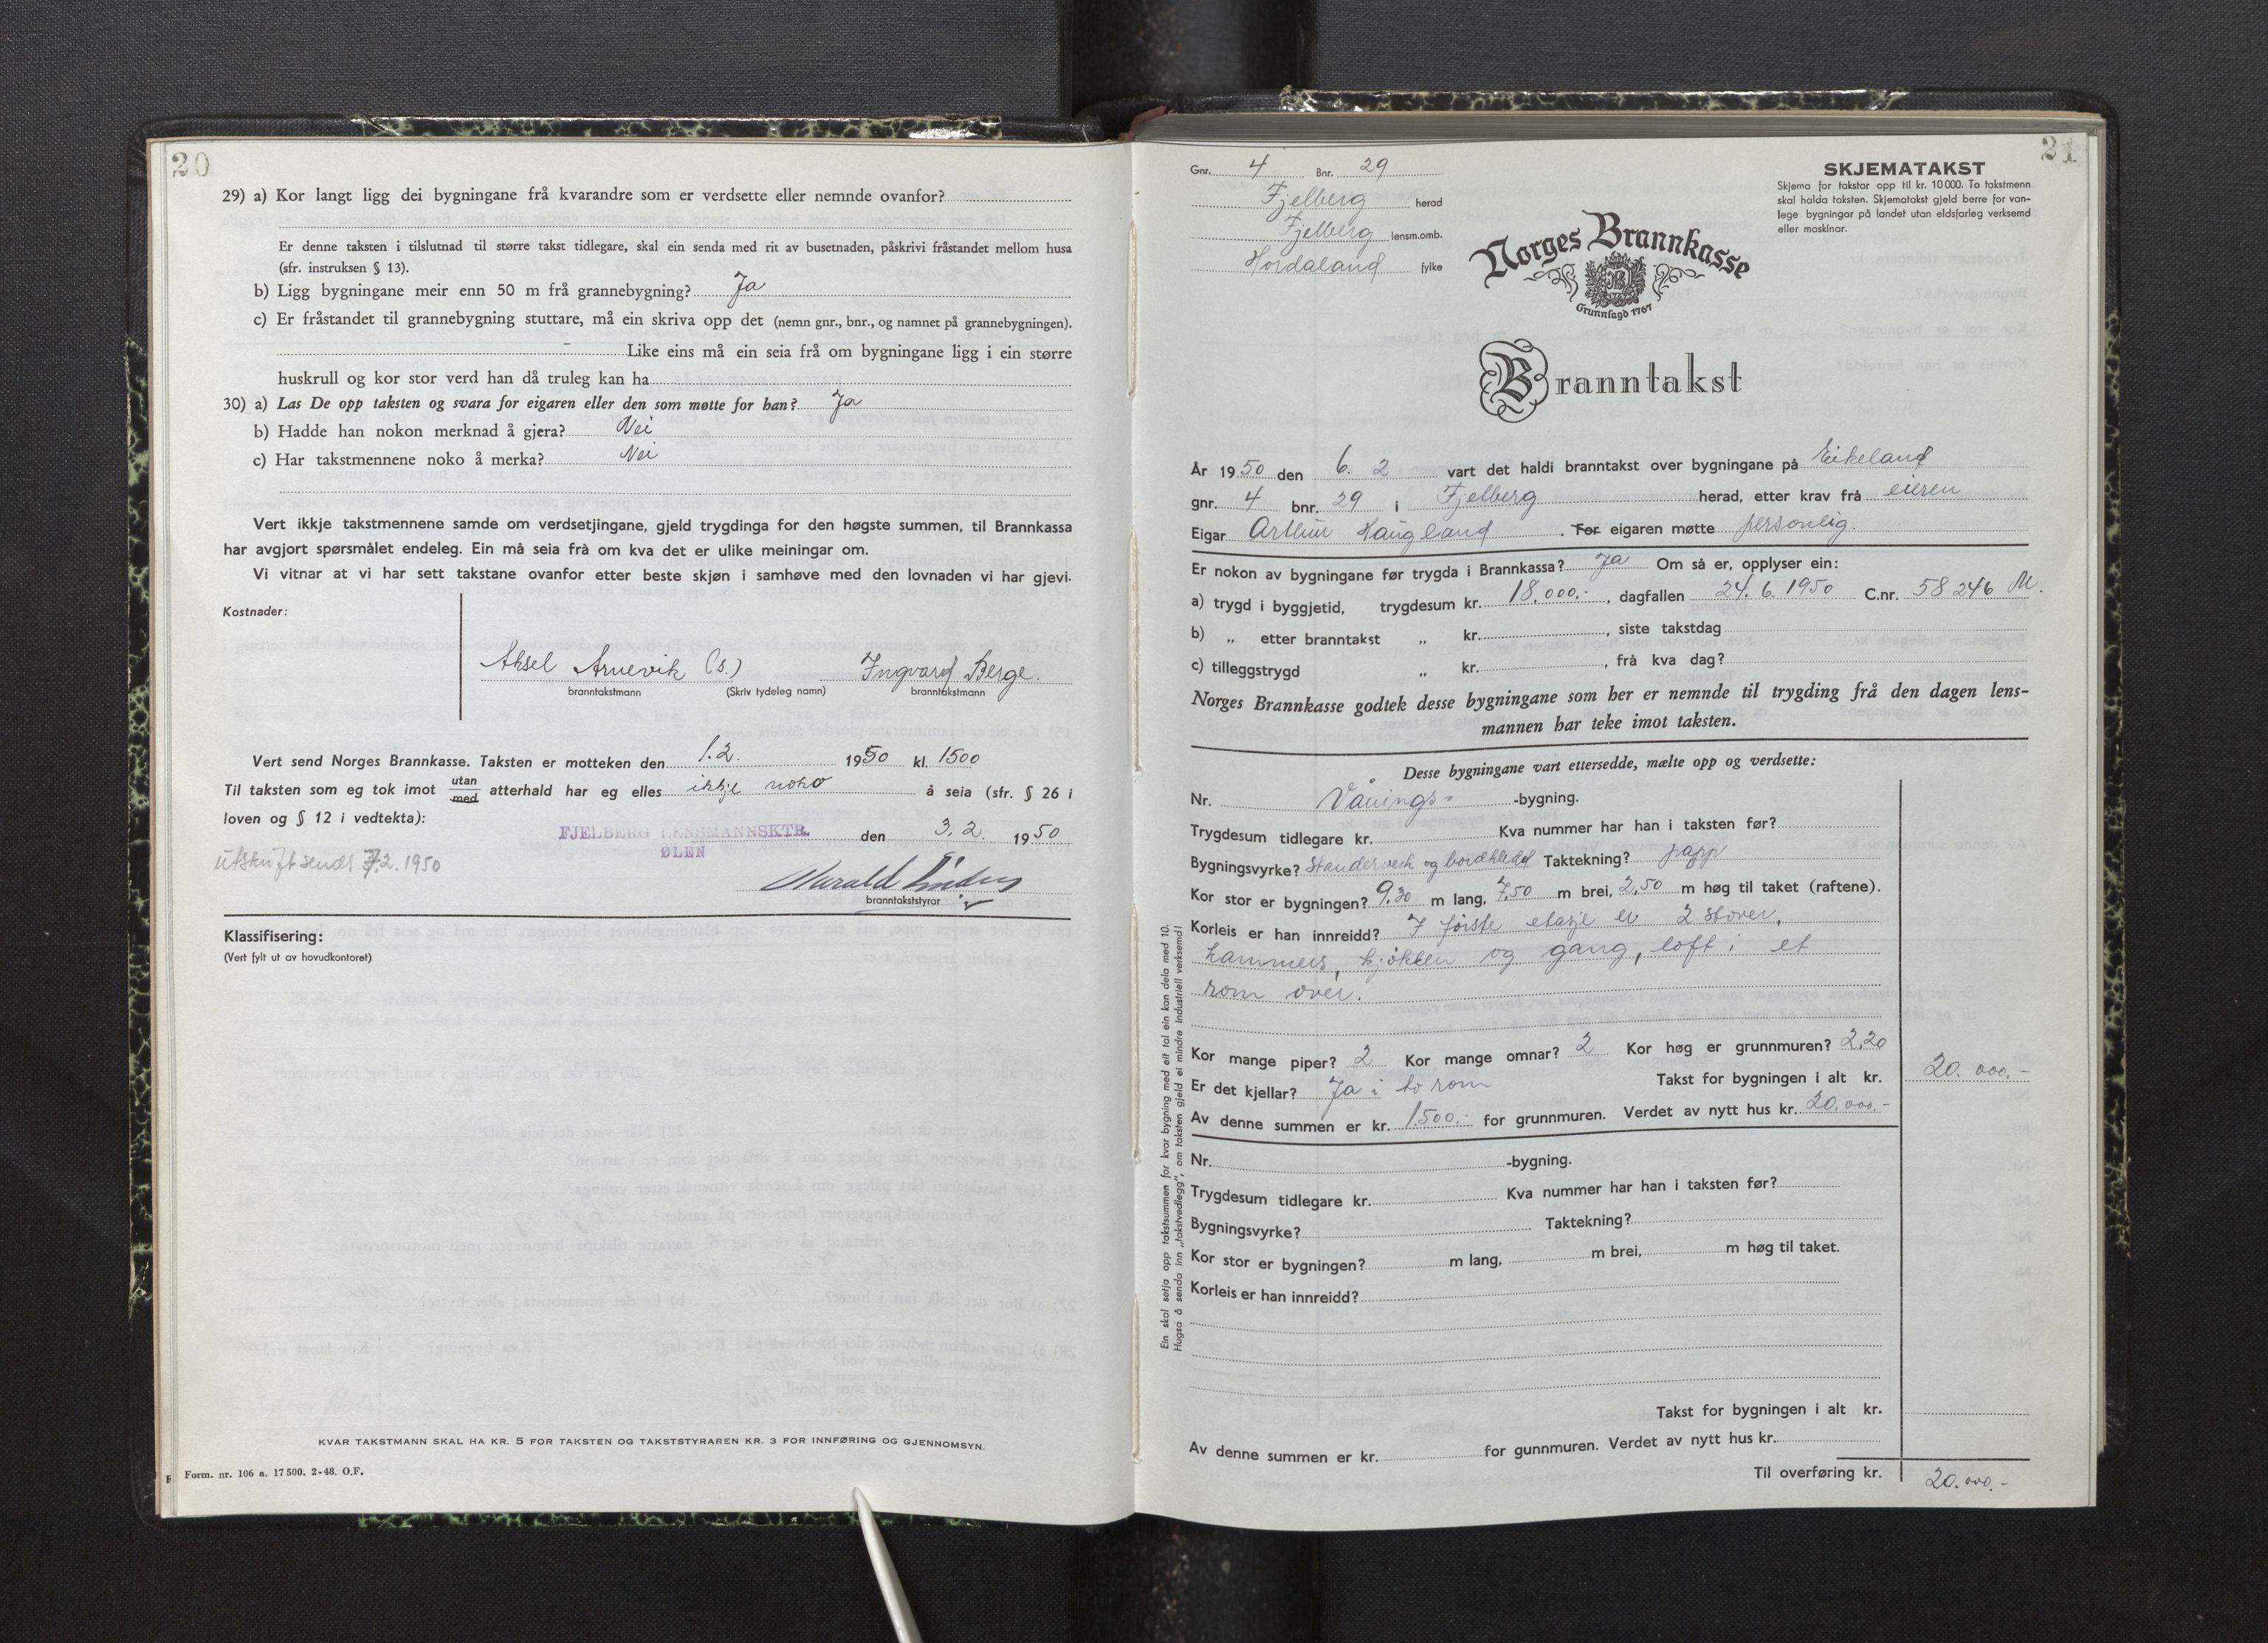 20
29) a) Kor langt ligg dei bygningane frå kvarandre som er verdsette eller nemnde ovanfor?
Er denne taksten i tilslutnad til større takst tidlegare, skal ein senda med rit av busetnaden, påskrivi fråstandet mellom husa
(sfr. instruksen § 13).
b) Ligg bygningane meir enn 50 m frå grannebygning? Ja
c) Er fråstandet til grannebygning stuttare, må ein skriva opp det (nemn gnr., bnr., og namnet på grannebygningen).
- Like eins må ein seia frå om bygningane ligg i ein større
huskrull og kor stor verd han då truleg kan ha
30) a) Las De opp taksten og svara for eigaren eller den som møtte for han? Ja
b) Hadde han nokon merknad å gjera? Nei
c) Har takstmennene noko å merka? Nei
Vert ikkje takstmennene samde om verdsetjingane, gjeld trygdinga for den høgste summen, til Brannkassa
har avgjort spørsmålet endeleg. Ein må seia frå om kva det er ulike meiningar om.
Vi vitnar at vi har sett takstane ovanfor etter beste skjøn i samhøve med den lovnaden vi har gjevi.
Kostnader:
Aksel Arnevik (s.) Ingvard Berge.
branntakstmann (Skriv tydeleg namn) branntakstmann
Vert send Norges Brannkasse. Taksten er motteken den 1.2. 1950 kl. 1500
Til taksten som eg tok imot utan med atterhald har eg elles ikkje noko å seia (sfr. § 26 i
loven og § 12 i vedtekta):
FJELBERG LENSMANNSKTR. den 3.2. 1950
ØLEN
utskrift sendt 7.2.1950
Harald
branntakststyrar
Klassifisering:
(Vert fylt ut av hovudkontoret)
KVAR TAKSTMANN SKAL HA KR. 5 FOR TAKSTEN OG TAKSTSTYRAREN KR. 3 FOR INNFØRING OG GJENNOMSYN.
Form. nr. 106 a. 17 500. 2-48. O.F.
21
Gnr. 4 Bnr. 29
Fjelberg herad
Fjelberg lensm.omb.
Hordaland fylke
SKJEMATAKST
Skjema for takstar opp til kr. 10 000. To takstmenn
skal halda taksten. Skjematakst gjeld berre for van-
lege bygningar på landet utan eldsfarleg verksemd
eller maskinar.
Norges Brannkasse
Grunnlagd 1767
Branntakst
År 1950 den 6. 2 vart det haldi branntakst over bygningane på Eikeland
gnr. 4 bnr. 29 i Fjelberg herad, etter krav frå eieren
Eigar Arthur Haugland. For eigaren møtte personlig.
Er nokon av bygningane før trygda i Brannkassa? Ja Om så er, opplyser ein:
a) trygd i byggjetid, trygdesum kr. 18.000.-, dagfallen 24.6.1950 C.nr. 58246 M.
b) „ etter branntakst „ kr. , siste takstdag
c) tilleggstrygd „ kr. , frå kva dag?
Norges Brannkasse godtek desse bygningane som her er nemnde til trygding frå den dagen lens-
mannen har teke imot taksten.
Desse bygningane vart ettersedde, mælte opp og verdsette:
Nr. Vånings- -bygning.
Trygdesum tidlegare kr. Kva nummer har han i taksten før?
Bygningsvyrke? Standerverk og bordkledd Taktekning? papp
Kor stor er bygningen? 9,30 m lang, 7,50 m brei, 2,50 m høg til taket (raftene).
Korleis er han innreidd? I første etasje er 2 stover,
kammers, kjøkken og gang, loft i et
rom over.
Kor mange piper? 2 Kor mange omnar? 2 Kor høg er grunnmuren? 2,20
Er det kjellar? Ja i to rom Takst for bygningen i alt kr. 20.000.-
Av denne summen er kr. 1.500.- for grunnmuren. Verdet av nytt hus kr. 20.000.-
Nr. -bygning.
Trygdesum tidlegare kr. Kva nummer har han i taksten før?
Bygningsvyrke? Taktekning?
Kor stor er bygningen? m lang, m brei, m høg til taket.
Korleis er han innreidd?
Takst for bygningen i alt kr.
Av denne summen er kr. for gunnmuren. Verdet av nytt hus kr.
Til overføring kr. 20.000.-
Ein skal setja opp takstsummen for kvar bygning med eit tal ein kan dela med 10.
Hugsa å senda inn „takstvedlegg", om taksten gjeld ei mindre industriell verksemd!